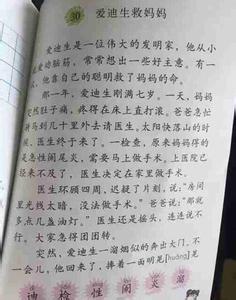 30 爱迪生救妈妈
爱迪生是一位伟大的发明家,他从小
爱动脑筋,常常想出一些好主意。有一
次,他靠自己的聪明救了妈妈的命。
那一年,爱迪生刚满七岁。一天,妈妈
突然肚子痛,疼得在床上直打滚。爸爸急忙
骑马到几十里外去请医生。太阳快落山的时
候,医生终于来了。一检查,原来妈妈得的
是急性阑尾炎,需要马上做手术。上医院已
经来不及了,医生决定在家里做手术。
医生环顾四周,迟疑了片刻,说:“房间
里光线太暗,没法做手术。”爸爸说:“那就
多点几盏油灯。”医生还是摇头,连连说不
行。大家急得团团转。
突然,爱迪生一溜烟似的奔出大门。不
一会儿,他回来了,捧着一面明晃[huǎng]晃
迪 检 性 阑 炎 溜